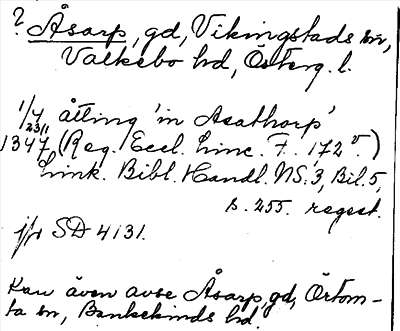 ? Åsarp, gd, Vikingstads sn,
Valkebo hd, Österg. l.
1/4 åtting 'in Asathorp'
23/1
1347 (Reg. Eccl. Linc. F. 172 v.)
Link. Bibl. Handl. NS:3, Bil. 5,
s. 255. regest.
jfr SD 4131.
Kan även avse Åsarp, gd, Örtom-
ta sn, Bankekinds hd.